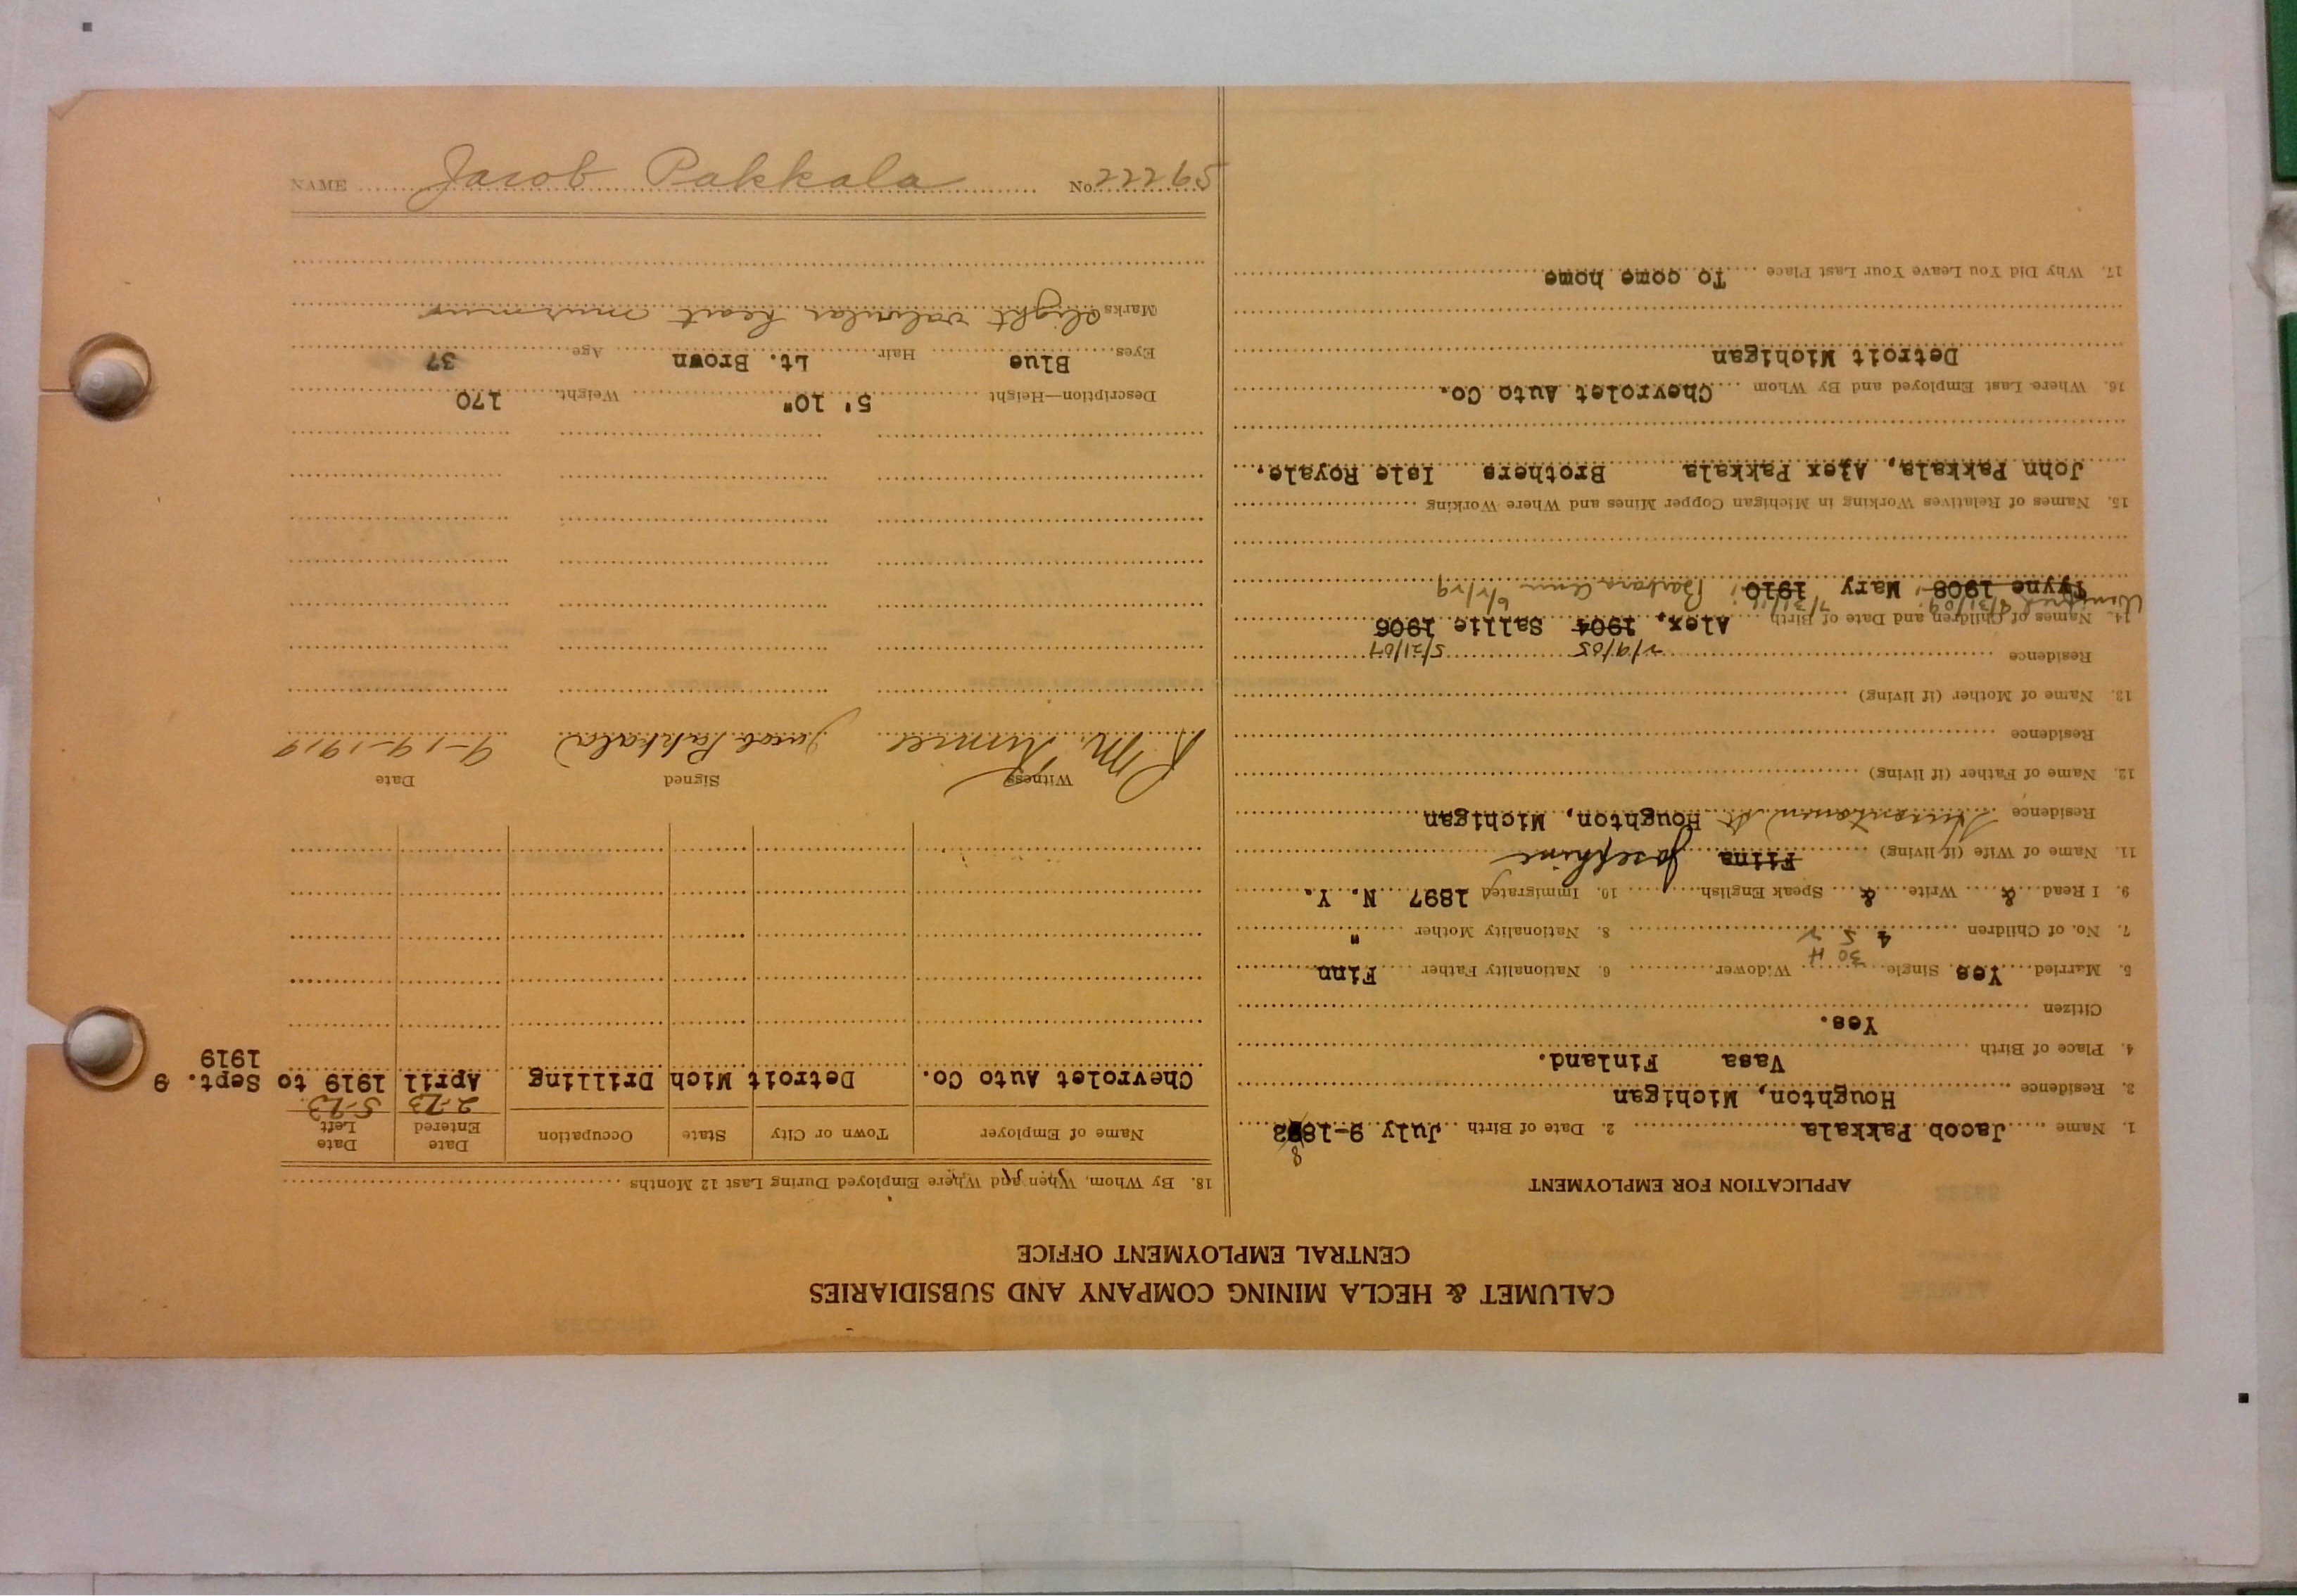 CALUMET & HECLA MINING COMPANY AND SUBSIDIARIES
CENTRAL EMPLOYMENT OFFICE
APPLICATION FOR EMPLOYMENT
1. Name Jacob Pakkala 2. Date of Birth July 9-1882
8
3. Residence Houghton, Michigan
4. Place of Birth Vasa Finland.
Citizen Yes.
5. Married Yes Single Widower 6. Nationality Father Finn
30 H
7. No. of Children 4 5 8. Nationality Mother "
9. I Read & Write & Speak English 10. Immigrated 1897 N. Y.
11. Name of Wife (if living) Fiina Josephine
Residence Houghton, Michigan
12. Name of Father (if living)
Residence
13. Name of Mother (if living)
Residence
2/9/05 5/21/07
14. Names of Children and Date of Birth Alex, 1904 Sallie 1906
Winifred 8/31/09 7/31/11
Tyyne 1908 Mary 1910 Barbara Ann 6/2/29
15. Names of Relatives Working in Michigan Copper Mines and Where Working
John Pakkala, Alex Pakkala Brothers Isle Royale.
16. Where Last Employed and By Whom Chevrolet Auto Co.
Detroit Michigan
17. Why Did You Leave Your Last Place To come home
18. By Whom, When and Where Employed During Last 12 Months
Name of Employer Town or City State Occupation Date Entered Date Left
2-23 5-23
Chevrolet Auto Co. Detroit Mich Drilling April 1919 to Sept. 9
1919
Witness Signed Date
R M. Jacob Pakkala 9-19-1919
Description—Height 5' 10" Weight 170
Eyes Blue Hair Lt. Brown Age 37
Marks slight valvular heart murmur
NAME Jacob Pakkala No. 22265